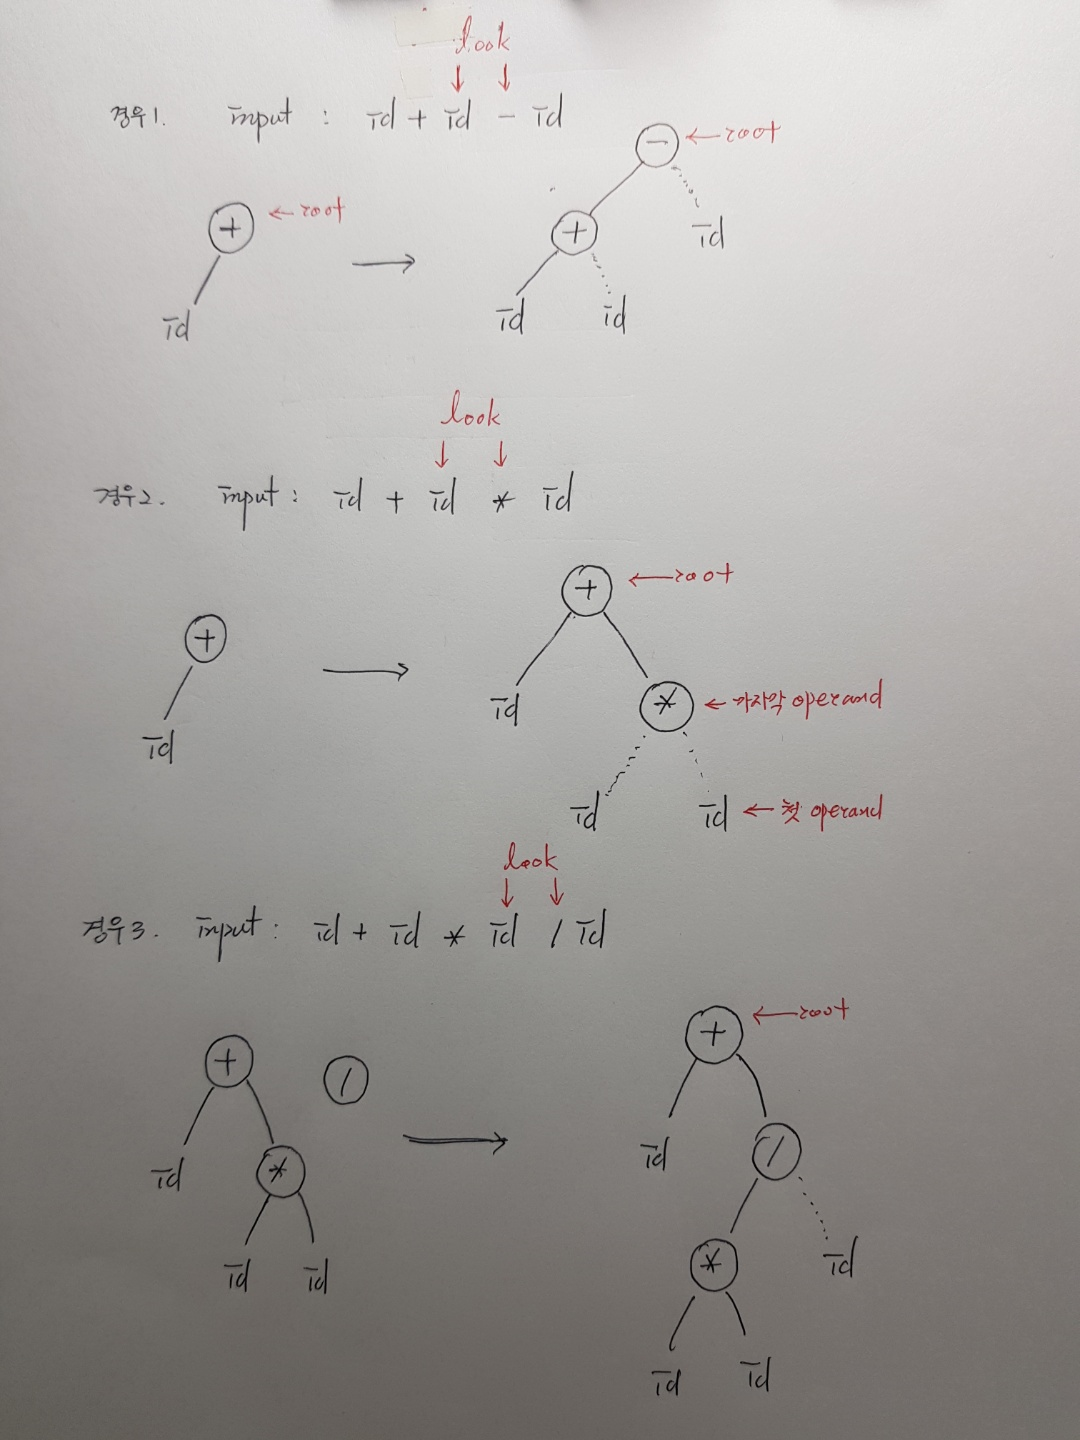 look
↓ ↓
경우1. input : id + id - id
- ← root
+ ← root
→
+ id
id id id
look
↓ ↓
경우2. input : id + id * id
+ ← root
+ →
id * ← 마지막 operand
id
id id ← 첫 operand
look
↓ ↓
경우3. input : id + id * id / id
+ ← root
+ /
→
id * id /
id id * id
id id